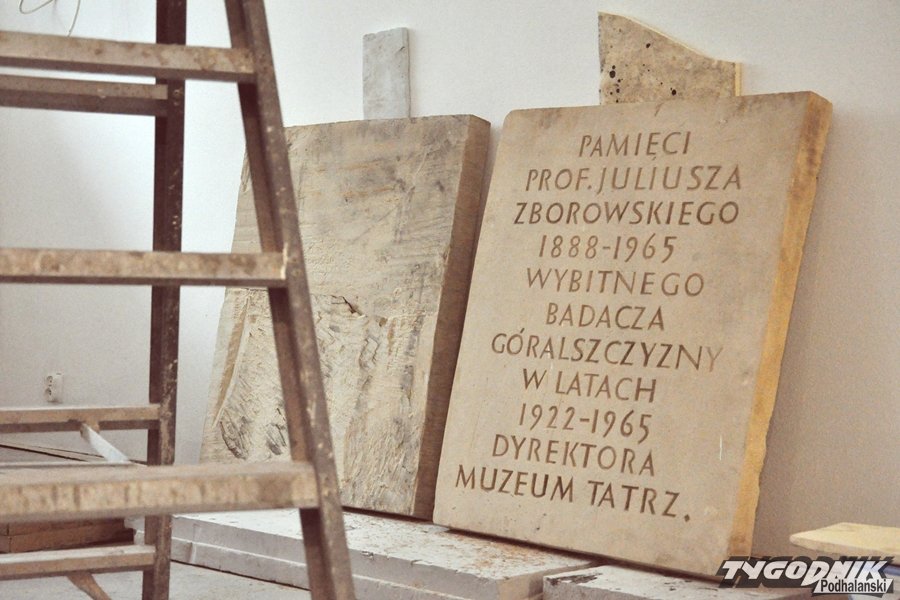 PAMIĘCI
PROF. JULIUSZA
ZBOROWSKIEGO
1888-1965
WYBITNEGO
BADACZA
GÓRALSZCZYZNY
W LATACH
1922-1965
DYREKTORA
MUZEUM TATRZ.
TYGODNIK
Podhalański